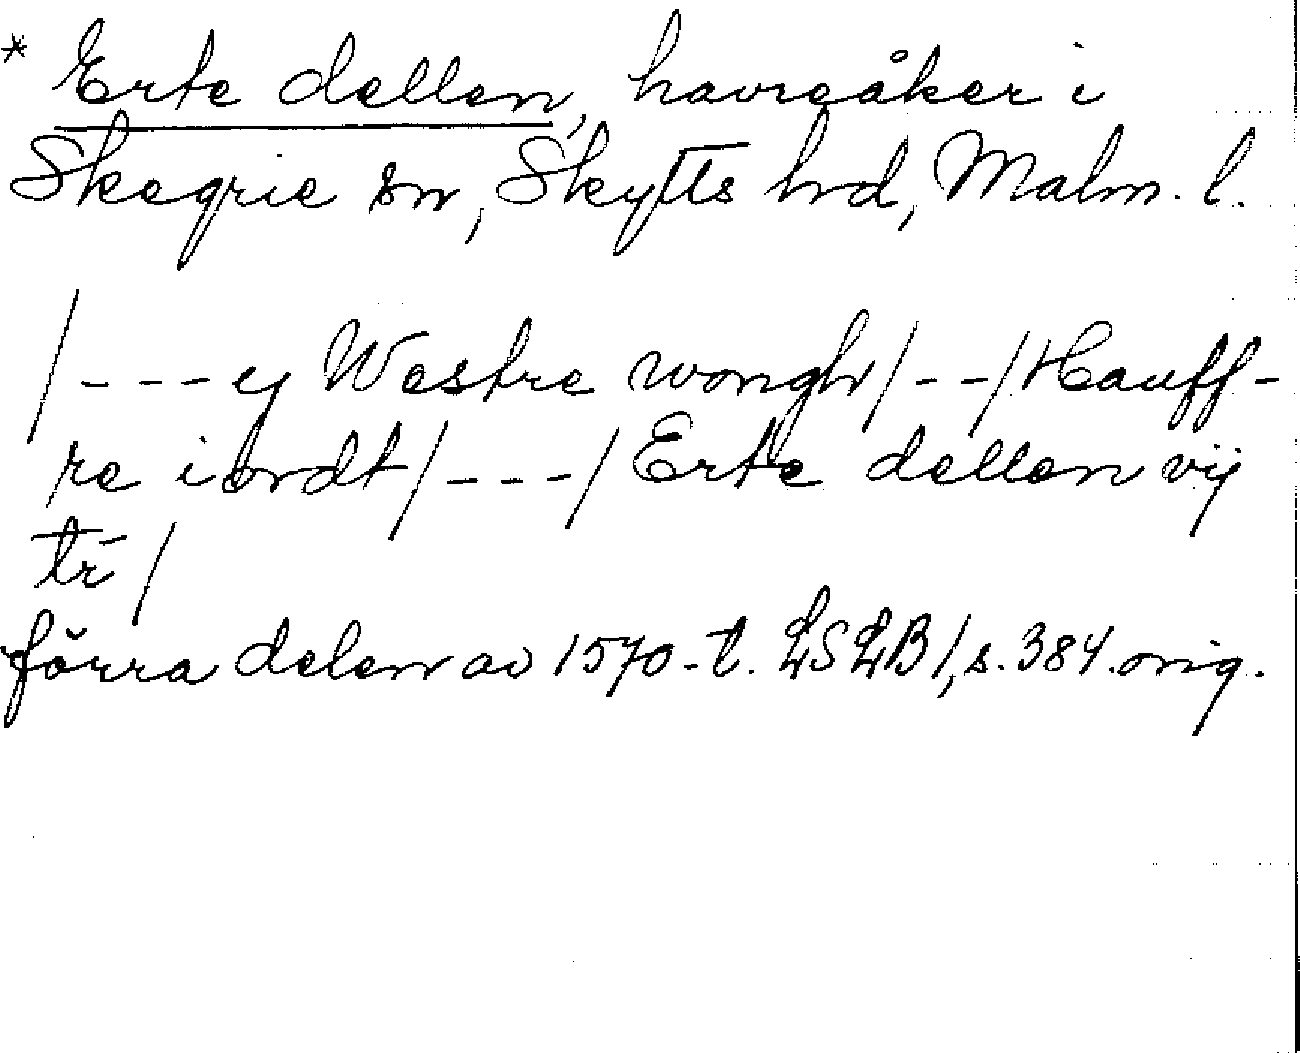 * Erte dellen, havreåker i
Skegrie sn, Skytts hd, Malm. l.
/---ej Westre wongh/--/Hauff-
re iordt/---/Erte dellen vij
tr̄/
förra delen av 1570-t. LSLB1, s. 384. orig.